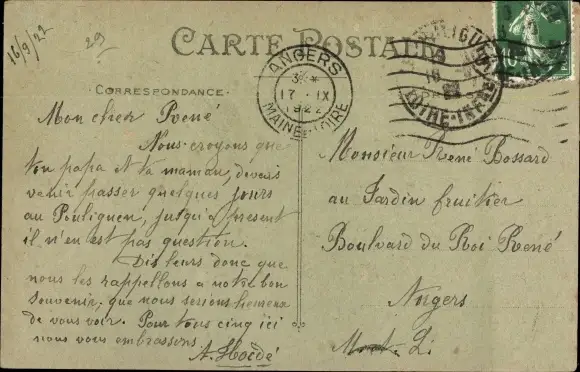 16/9/22
29
CARTE POSTALE
CORRESPONDANCE
ANGERS
3
17 - IX
1922
MAINE-ET-LOIRE
LOIRE-INFRE
10
Mon cher René
Nous croyons que
ton papa et ta maman, devais
venir passer quelques jours
au Pouliguen, jusqu'a present
il n'en est pas question.
Dis leurs donc que
nous les rappellons a notre bon
souvenir, que nous serions heureux
de vous voir. Pour tous cinq ici
nous vous embrassons
A. Hoëdé
Monsieur René Bossard
au Jardin fruitier
Boulvard du Roi René
Angers
M. L.